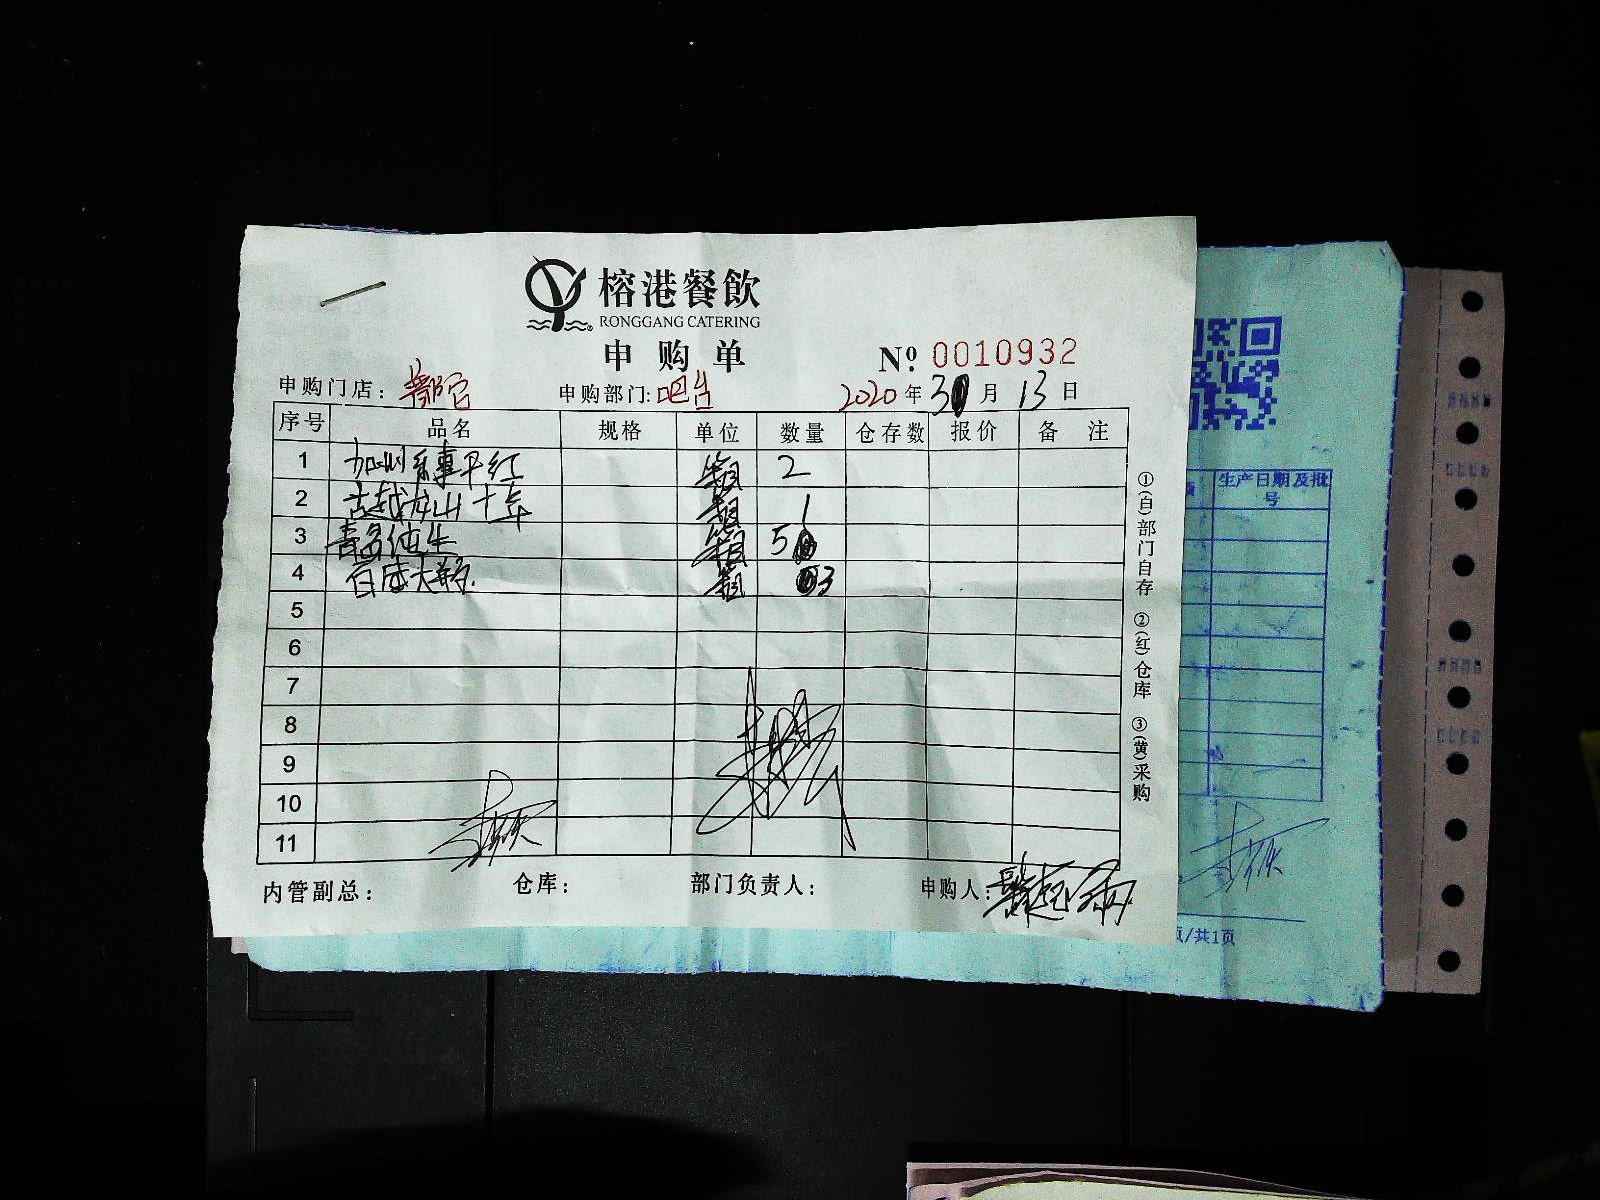 榕港餐飲
RONGGANG CATERING
申购单
№ 0010932
申购门店： 申购部门:吧台 2020年3月13日
序号 品名 规格 单位 数量 仓存数 报价 备注
1 加州 干红 箱 2
2 古越龙山十年 箱 1
3 青岛纯生 箱 5
4 百威大瓶 箱 3
5
6
7
8
9
10
11
内管副总： 仓库： 部门负责人： 申购人：
①(白)部门自存 ②(红)仓库 ③(黄)采购
生产日期及批号
页/共1页